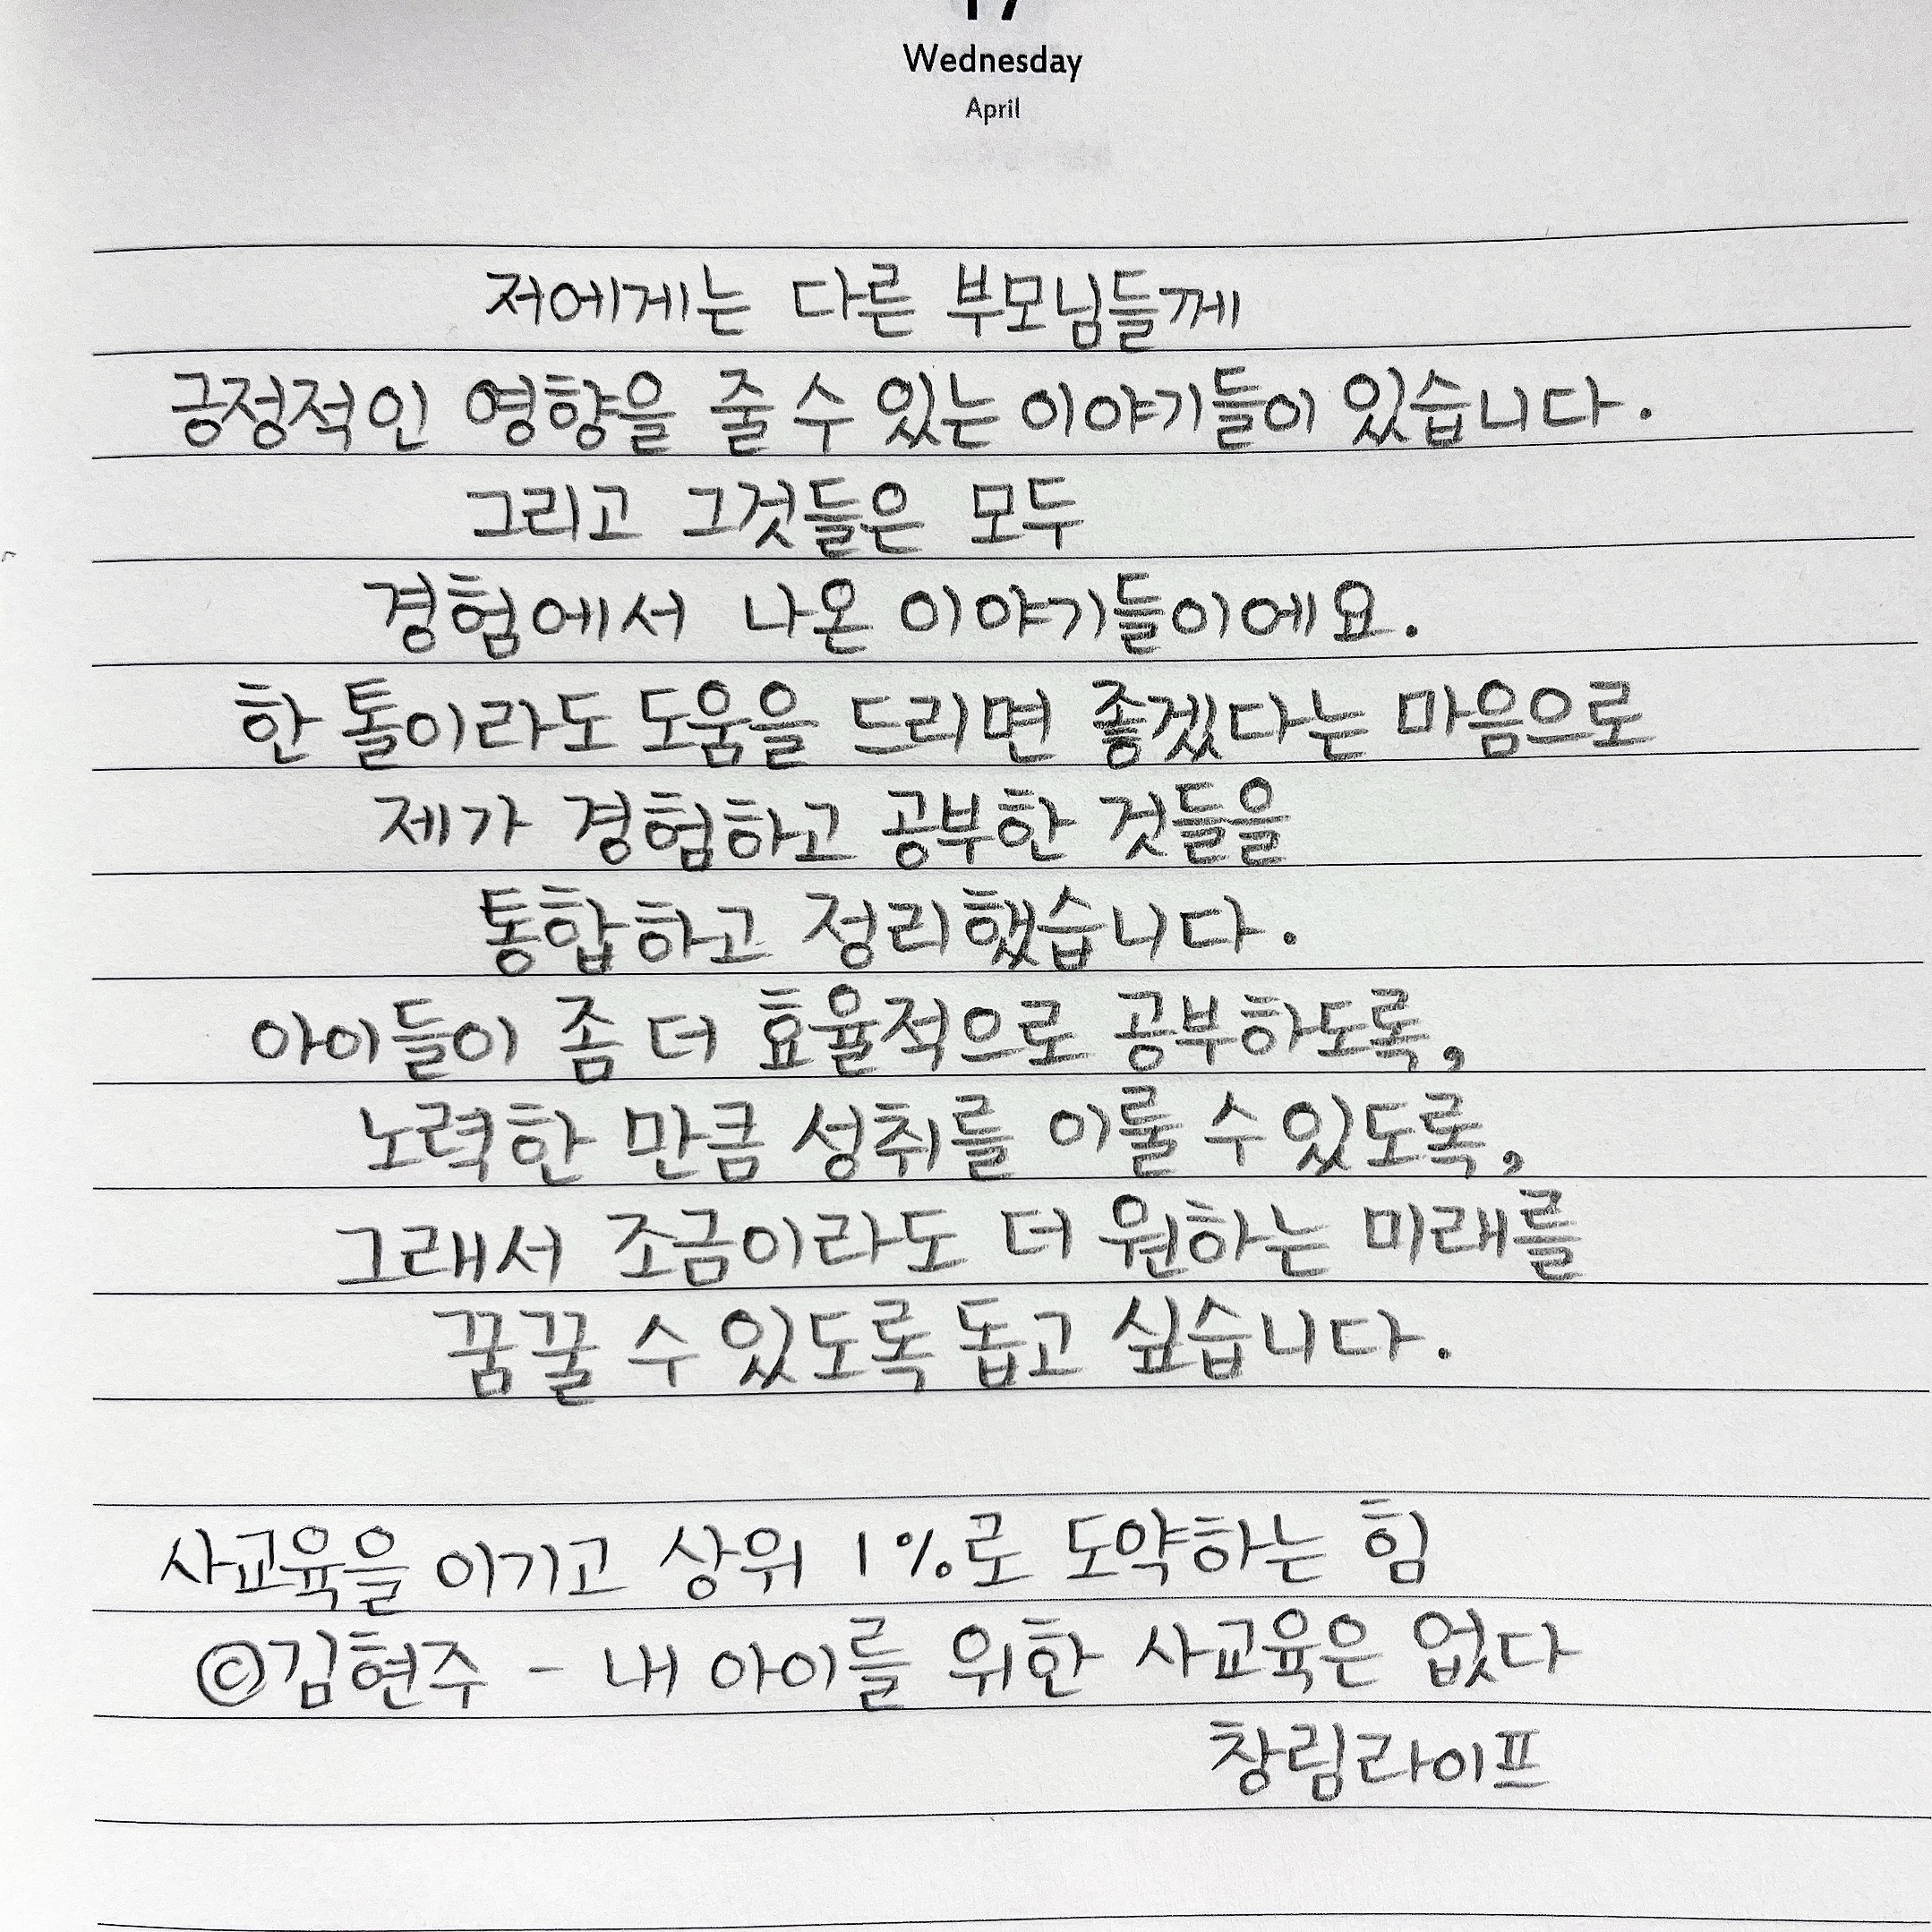 17
Wednesday
April
저에게는 다른 부모님들께
긍정적인 영향을 줄 수 있는 이야기들이 있습니다.
그리고 그것들은 모두
경험에서 나온 이야기들이에요.
한 톨이라도 도움을 드리면 좋겠다는 마음으로
제가 경험하고 공부한 것들을
통합하고 정리했습니다.
아이들이 좀 더 효율적으로 공부하도록,
노력한 만큼 성취를 이룰 수 있도록,
그래서 조금이라도 더 원하는 미래를
꿈꿀 수 있도록 돕고 싶습니다.
사교육을 이기고 상위 1%로 도약하는 힘
©김현주 - 내 아이를 위한 사교육은 없다
창림라이프